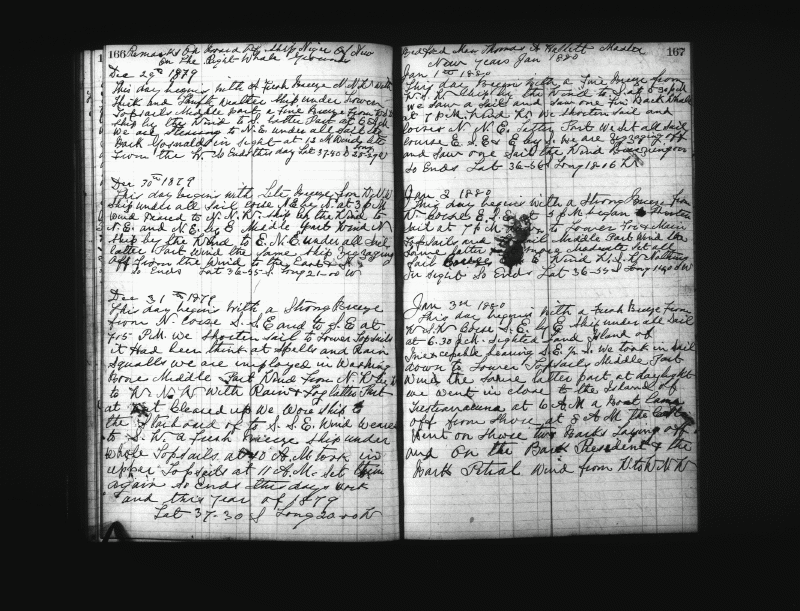 166 Remarks On Board Of Ship Niger Of New
On The Right Whale Ground
Dec 29th 1879
This day begins with A Fresh Breeze N.N.W. with
Thick and weather Ship under Lower
Topsails Middle part a Fine Breeze from
Ship by the Wind to S. latter Part at 6 A.M.
We are Steering to N.E. under all Sail the
Bark in Sight at 12 M Wind
From the W. So Ends this day Lat 37-40 S
Dec 30th 1879
This day begins with Lite Breeze from W.N.W
Ship under all Sail Corse N.E. by N. at 3 P.M
Wind Varied to N.N.W. Ship by the Wind to
N.E. and N.E. by E Middle Part Wind N
Ship by the Wind to E.N.E. under all Sail
latter Part Wind the Same Ship Zigzaging
off from the Wind to the East
So Ends Lat 36-55 S Long 21-00 W
Dec 31th 1879
This day begins With a Strong Breeze
from N Corse S.S.E and to S.E at
7.15 P.M. We Shorten Sail to Lower Topsails
it Had been thick at Spells and Rain
Squalls we are employed in Washing
Bone Middle Part Wind From N.W. by W
to W.N.W With Rain & Fog latter Part
at Cleared up We Wore Ship to
the and of to S.S.E. Wind Weared
to S.W. a Fresh Breeze Ship under
whole Topsails at 10 A.M. took in
upper Topsails at 11 A.M. Set them
again So Ends the days Work
and this year of 1879
Lat 37-30 S Long 20-00 W
Bedford Mass Thomas A Hallett Master 167
New years Jan 1880
Jan 1st 1880
This day Begun with a Fine Breeze from
W.S.W. Ship by the Wind to S. at 5-30 P.M
We Saw a Sail and Saw one Fin Back Whale
at 7 P.M. We Shorten Sail and
Corse N.N.E. Latter Part We Set all Sail
Course E.S.E & E by S. We are Zigzaging off
and Saw one Sail the Wind
So Ends Lat 36-56 S Long 18-16 W
Jan 2 1880
This day begins with a Strong Breeze from
W. Corse E.S.E. at 5 P.M. began to Shorten
Sail at 7 P.M. to Lower Fore & Main
Topsails and Sail Middle Part Wind the
Same latter Part a Moderate Set all
Sail Corse E Wind W.S.W. Nothing
in Sight So Ends Lat 36-59 S Long W
Jan 3rd 1880
This day begins with a Fresh Breeze From
W.S.W. Corse S.E. by E Ship under all Sail
at 6.30 P.M. Sighted Land Island of
Inexcepable bearing S.E. by S. We took in Sail
down to Lower Topsails Middle Part
Wind the Same latter part at daylight
we went in close to the Island of
Tristian acuna at 6 A.M a Boat Came
off from Shore at 8 A.M The Capt
Went on Shore two Barks Laying off
and On the Bark President & the
Bark Petrel Wind from W. to W.N.W